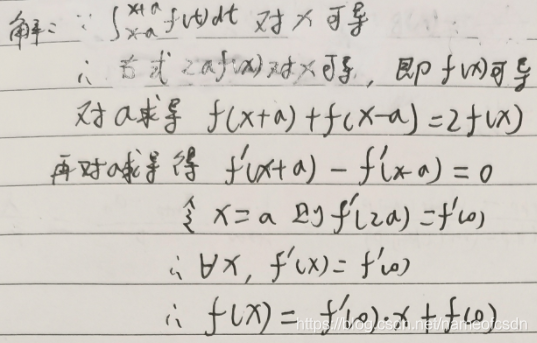 解：∵ ∫_{x-a}^{x+a} f(t)dt 对 x 可导
∴ 右式 2af(x) 对 x 可导，即 f(x) 可导
对 a 求导 f(x+a)+f(x-a)=2f(x)
再对a求导得 f'(x+a) - f'(x-a)=0
令 x=a 则 f'(2a)=f'(0)
∴ ∀x, f'(x)= f'(0)
∴ f(x)= f'(0)·x+f(0)
https://blog.csdn.net/nameofcsdn